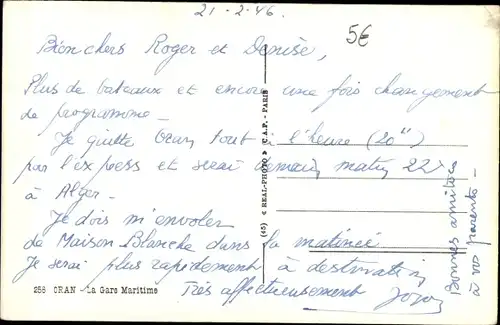 21-2-46.
5€
Bien chers Roger et Denise,
Plus de bateaux et encore une fois changement
de programme -
Je quitte Oran tout à l'heure (20")
par l'express et serai demain matin 22
à Alger -
Je dois m'envoler
de Maison Blanche dans la matinée
Je serai plus rapidement à destination
Très affectueusement
Bonnes amitiés
à vos parents -
256 ORAN - La Gare Maritime
(45) « REAL-PHOTO » C.A.P. - PARIS